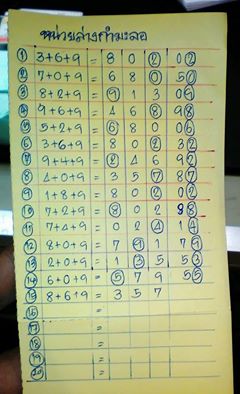 หน่วยล่างกำมะลอ
① 3+6+9 = 8 0 2 02
② 7+0+9 = 6 8 0 50
③ 8+2+9 = 9 1 3 06
④ 9+6+9 = 4 6 8 98
⑤ 5+2+9 = 6 8 0 06
⑥ 3+6+9 = 8 0 2 32
⑦ 9+4+9 = 2 4 6 92
⑧ 4+0+9 = 3 5 7 87
⑨ 1+8+9 = 8 0 2 02
⑩ 7+2+9 = 8 0 2 98
⑪ 7+4+9 = 0 2 4 14
⑫ 8+0+9 = 7 9 1 79
⑬ 2+0+9 = 1 3 5 53
⑭ 6+0+9 = 5 7 9 55
⑮ 8+6+9 = 3 5 7
⑯ =
⑰ =
⑱ =
⑲ =
⑳ =